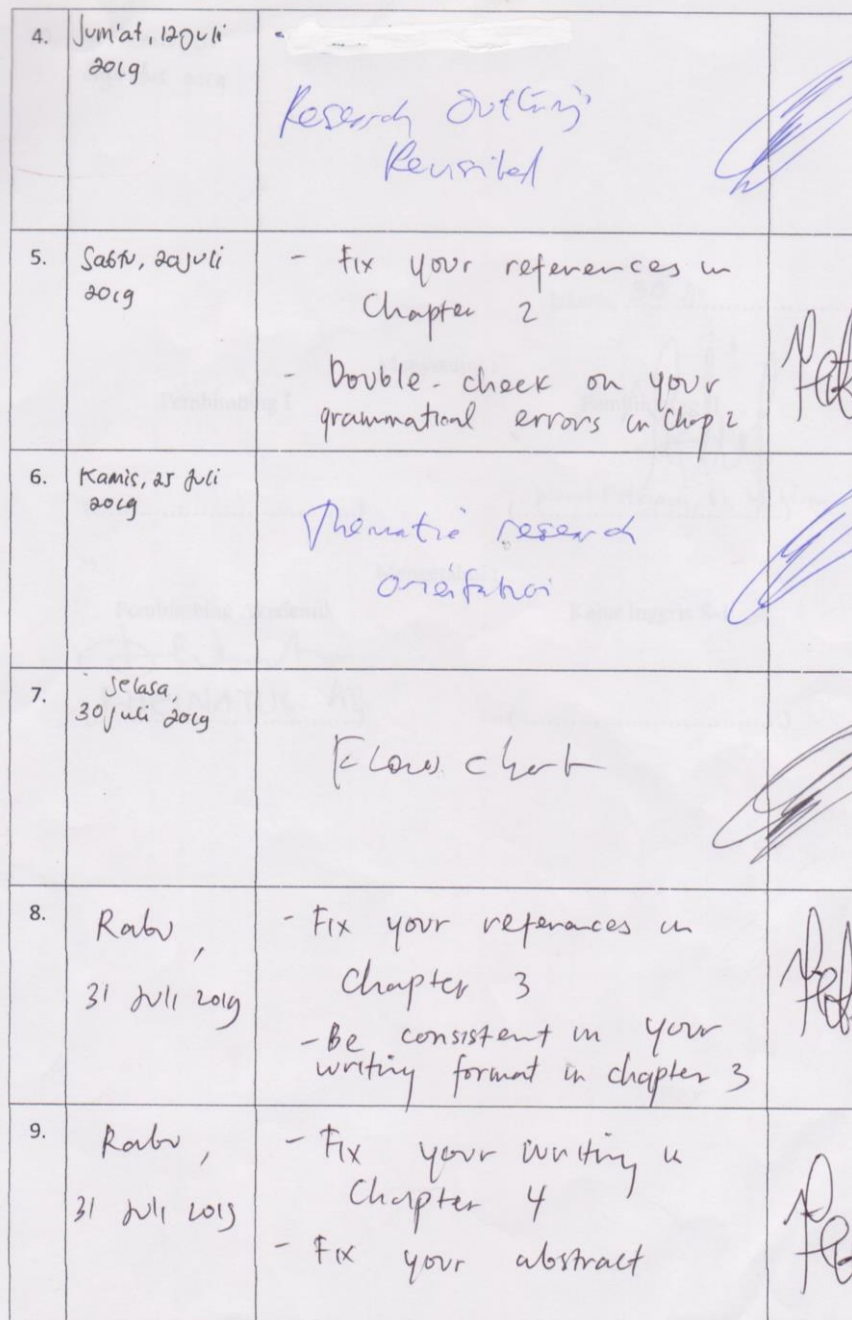 4. Jum'at, 12 Juli
2019
Research Outling
Revisited
5. Sabtu, 20 Juli
2019
- Fix your references in
Chapter 2
- Double-check on your
grammational errors in Chap 2
6. Kamis, 25 Juli
2019
Thematic research
orientation
7. Selasa,
30 Juli 2019
Flow chart
8. Rabu,
31 Juli 2019
- Fix your references in
Chapter 3
- Be consistent in your
writing format in chapter 3
9. Rabu,
31 Juli 2019
- Fix your writing in
Chapter 4
- Fix your abstract